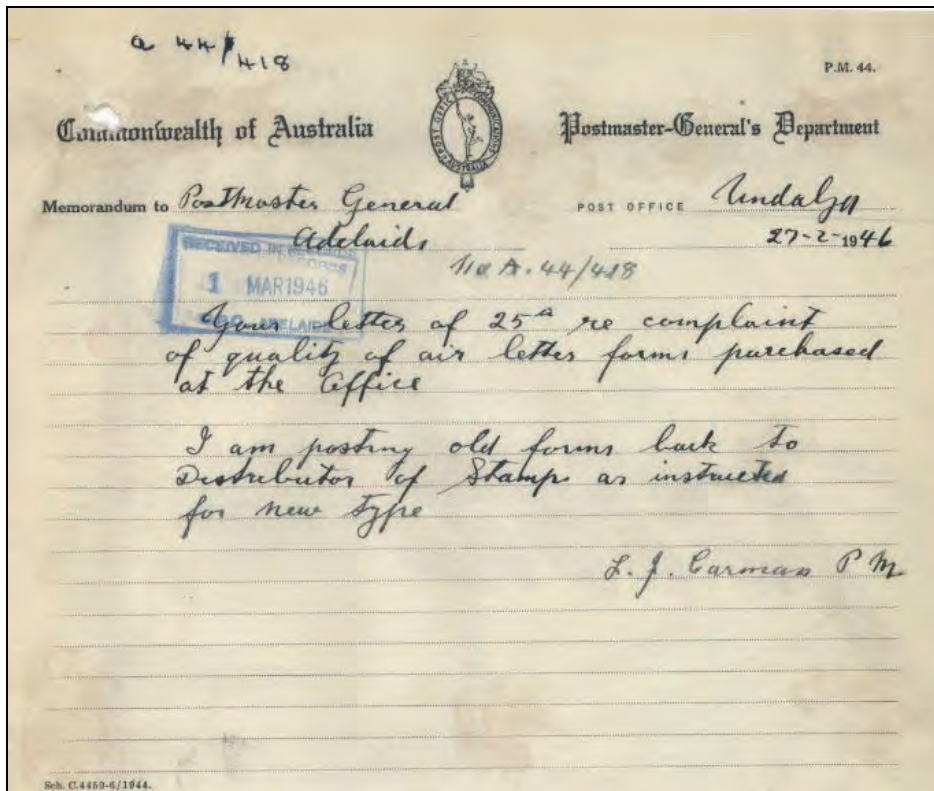 a 44/418
P.M. 44.
Commonwealth of Australia
POST OFFICE COMMUNICATIONS
AUSTRALIA
Postmaster-General's Department
Memorandum to PostMaster General
Adelaide
POST OFFICE Undalya
27-2-1946
RECEIVED IN RECORDS
1 MAR 1946
ADELAIDE
A. 44/418
Your letter of 25th re complaint
of quality of air letter forms purchased
at the Office
I am posting old forms back to
Distributor of Stamps as instructed
for new type
L. J. Carman P M
Sch. C.4459-6/1944.